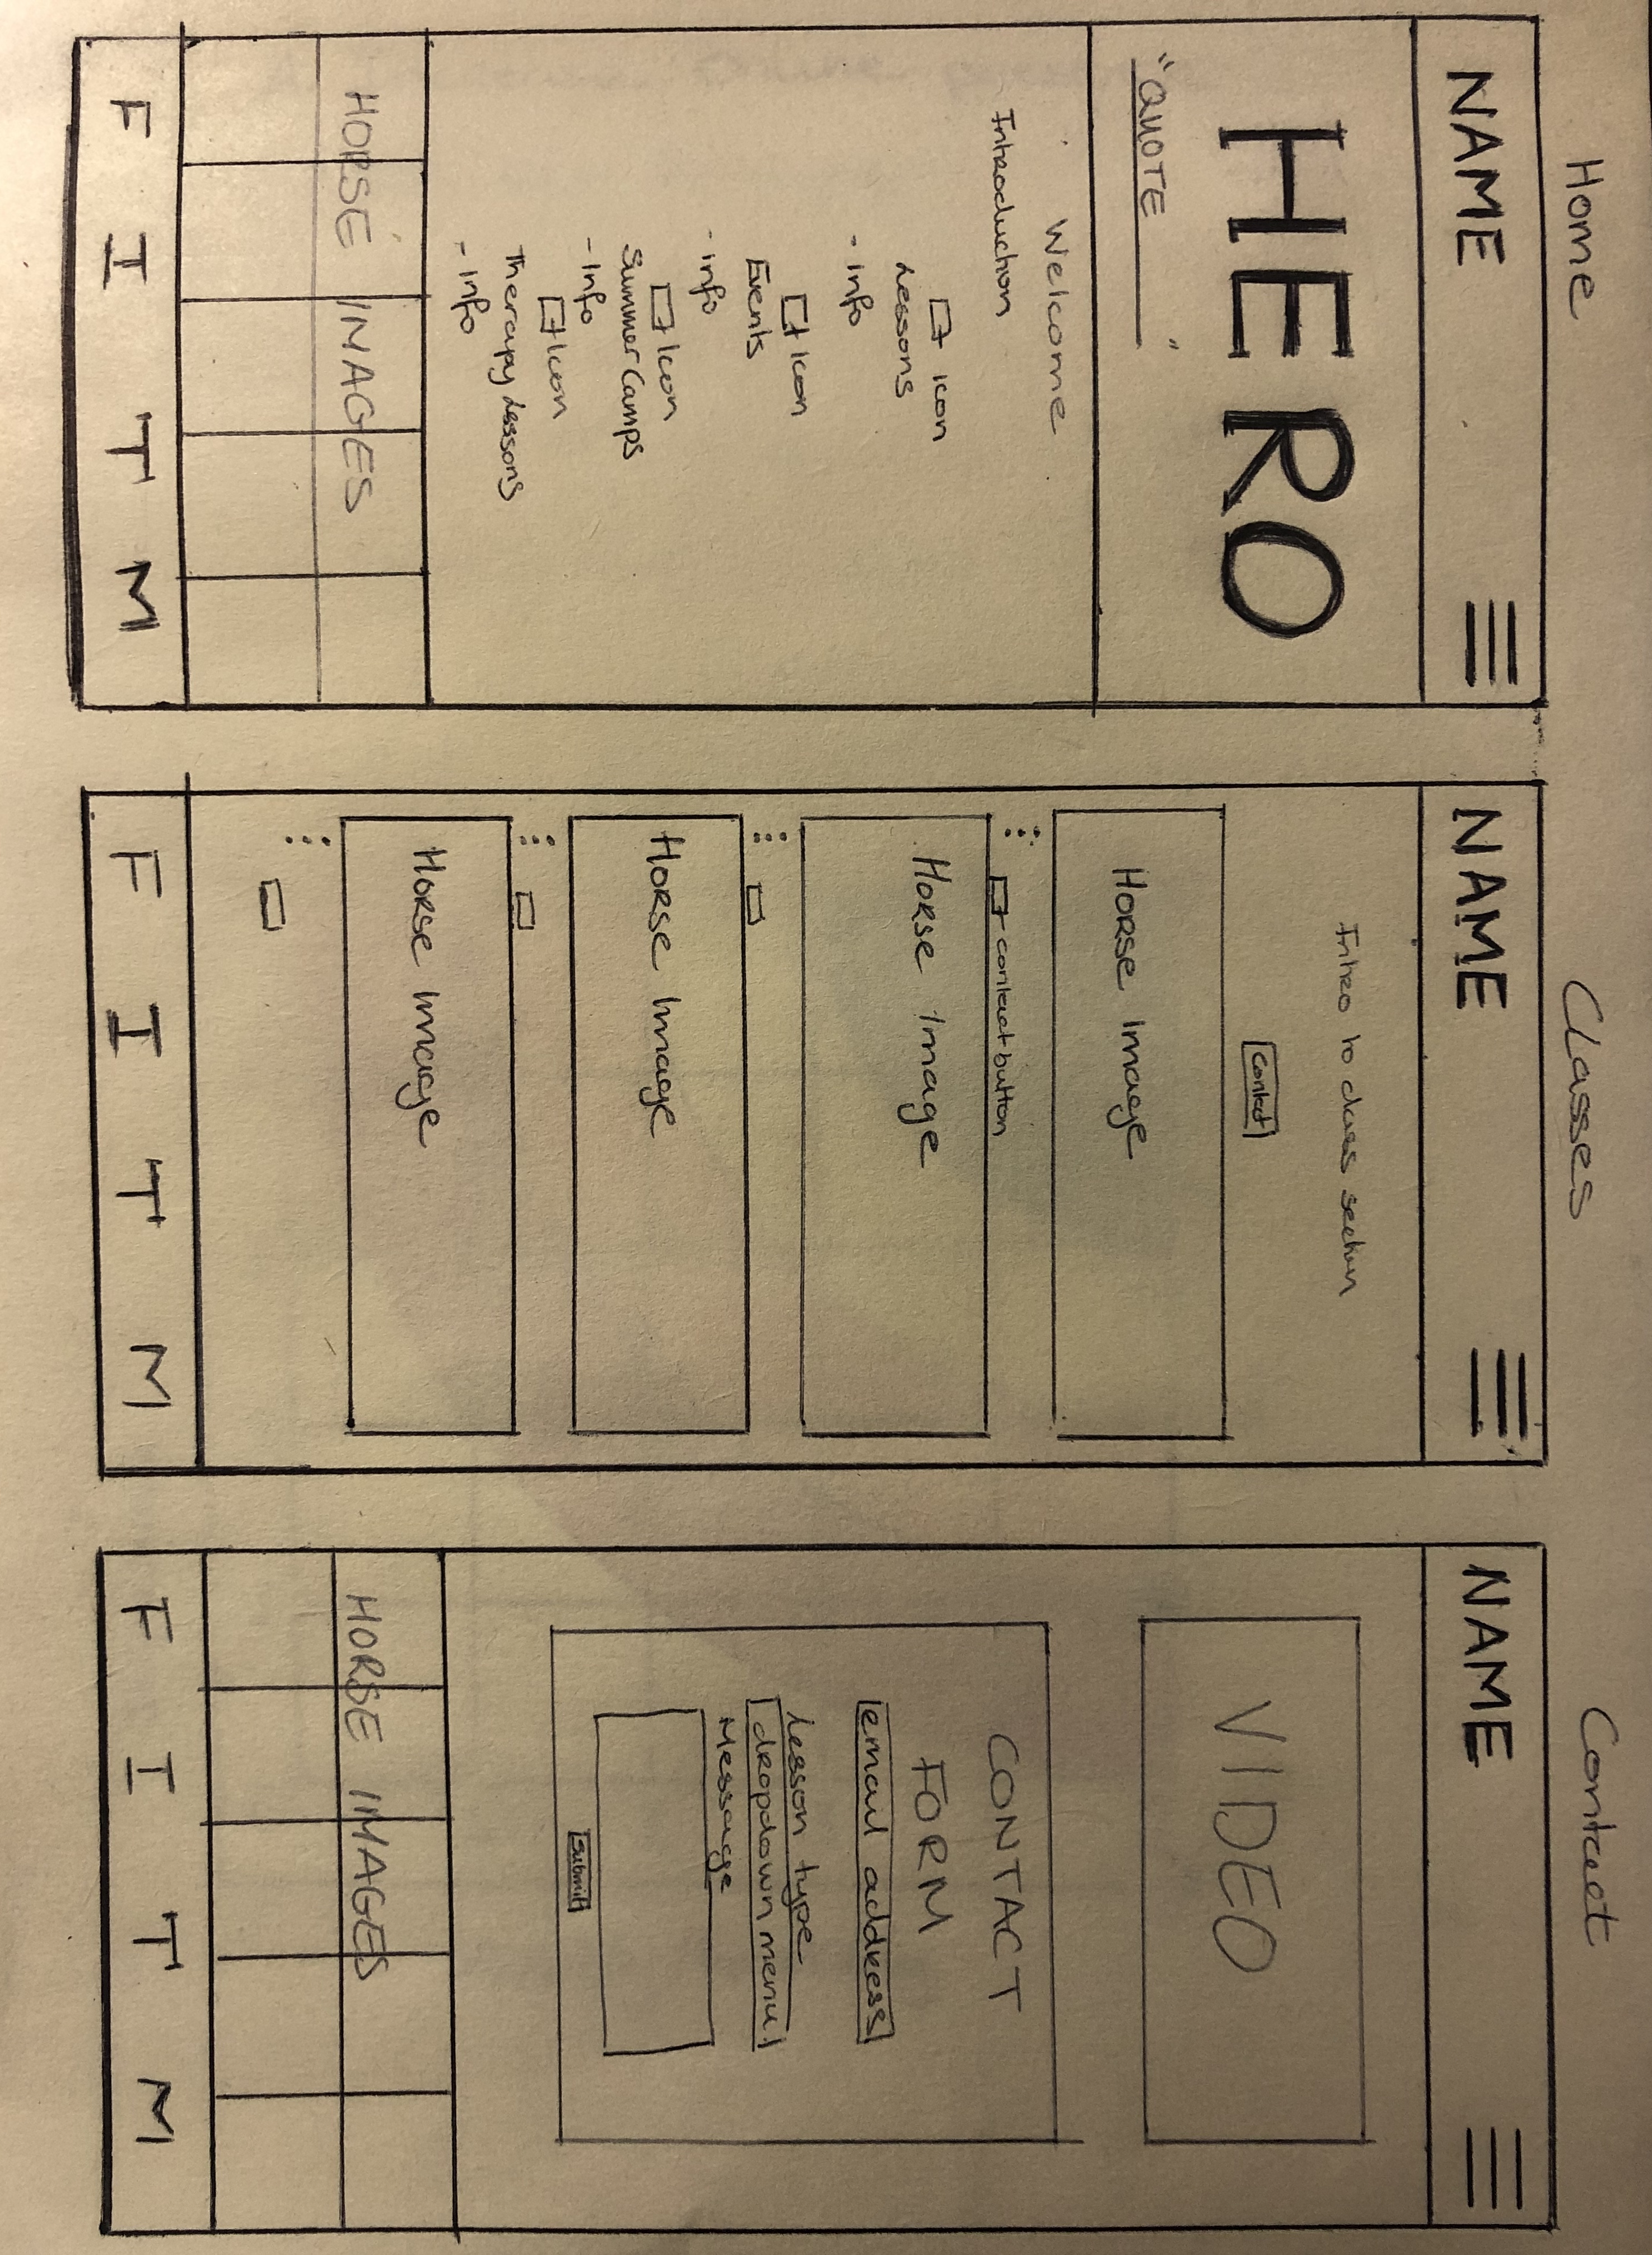 Home
NAME
HERO
"QUOTE"
Welcome
Introduction
icon
Lessons
- info
Icon
Events
- info
Icon
Summer Camps
- Info
Icon
Therapy Lessons
- Info
HORSE IMAGES
F I T M
Classes
NAME
Intro to class section
Contact
Horse Image
contact button
Horse Image
Horse Image
Horse Image
F I T M
Contact
NAME
VIDEO
CONTACT
FORM
email address
lesson type
dropdown menu
Message
Submit
HORSE IMAGES
F I T M